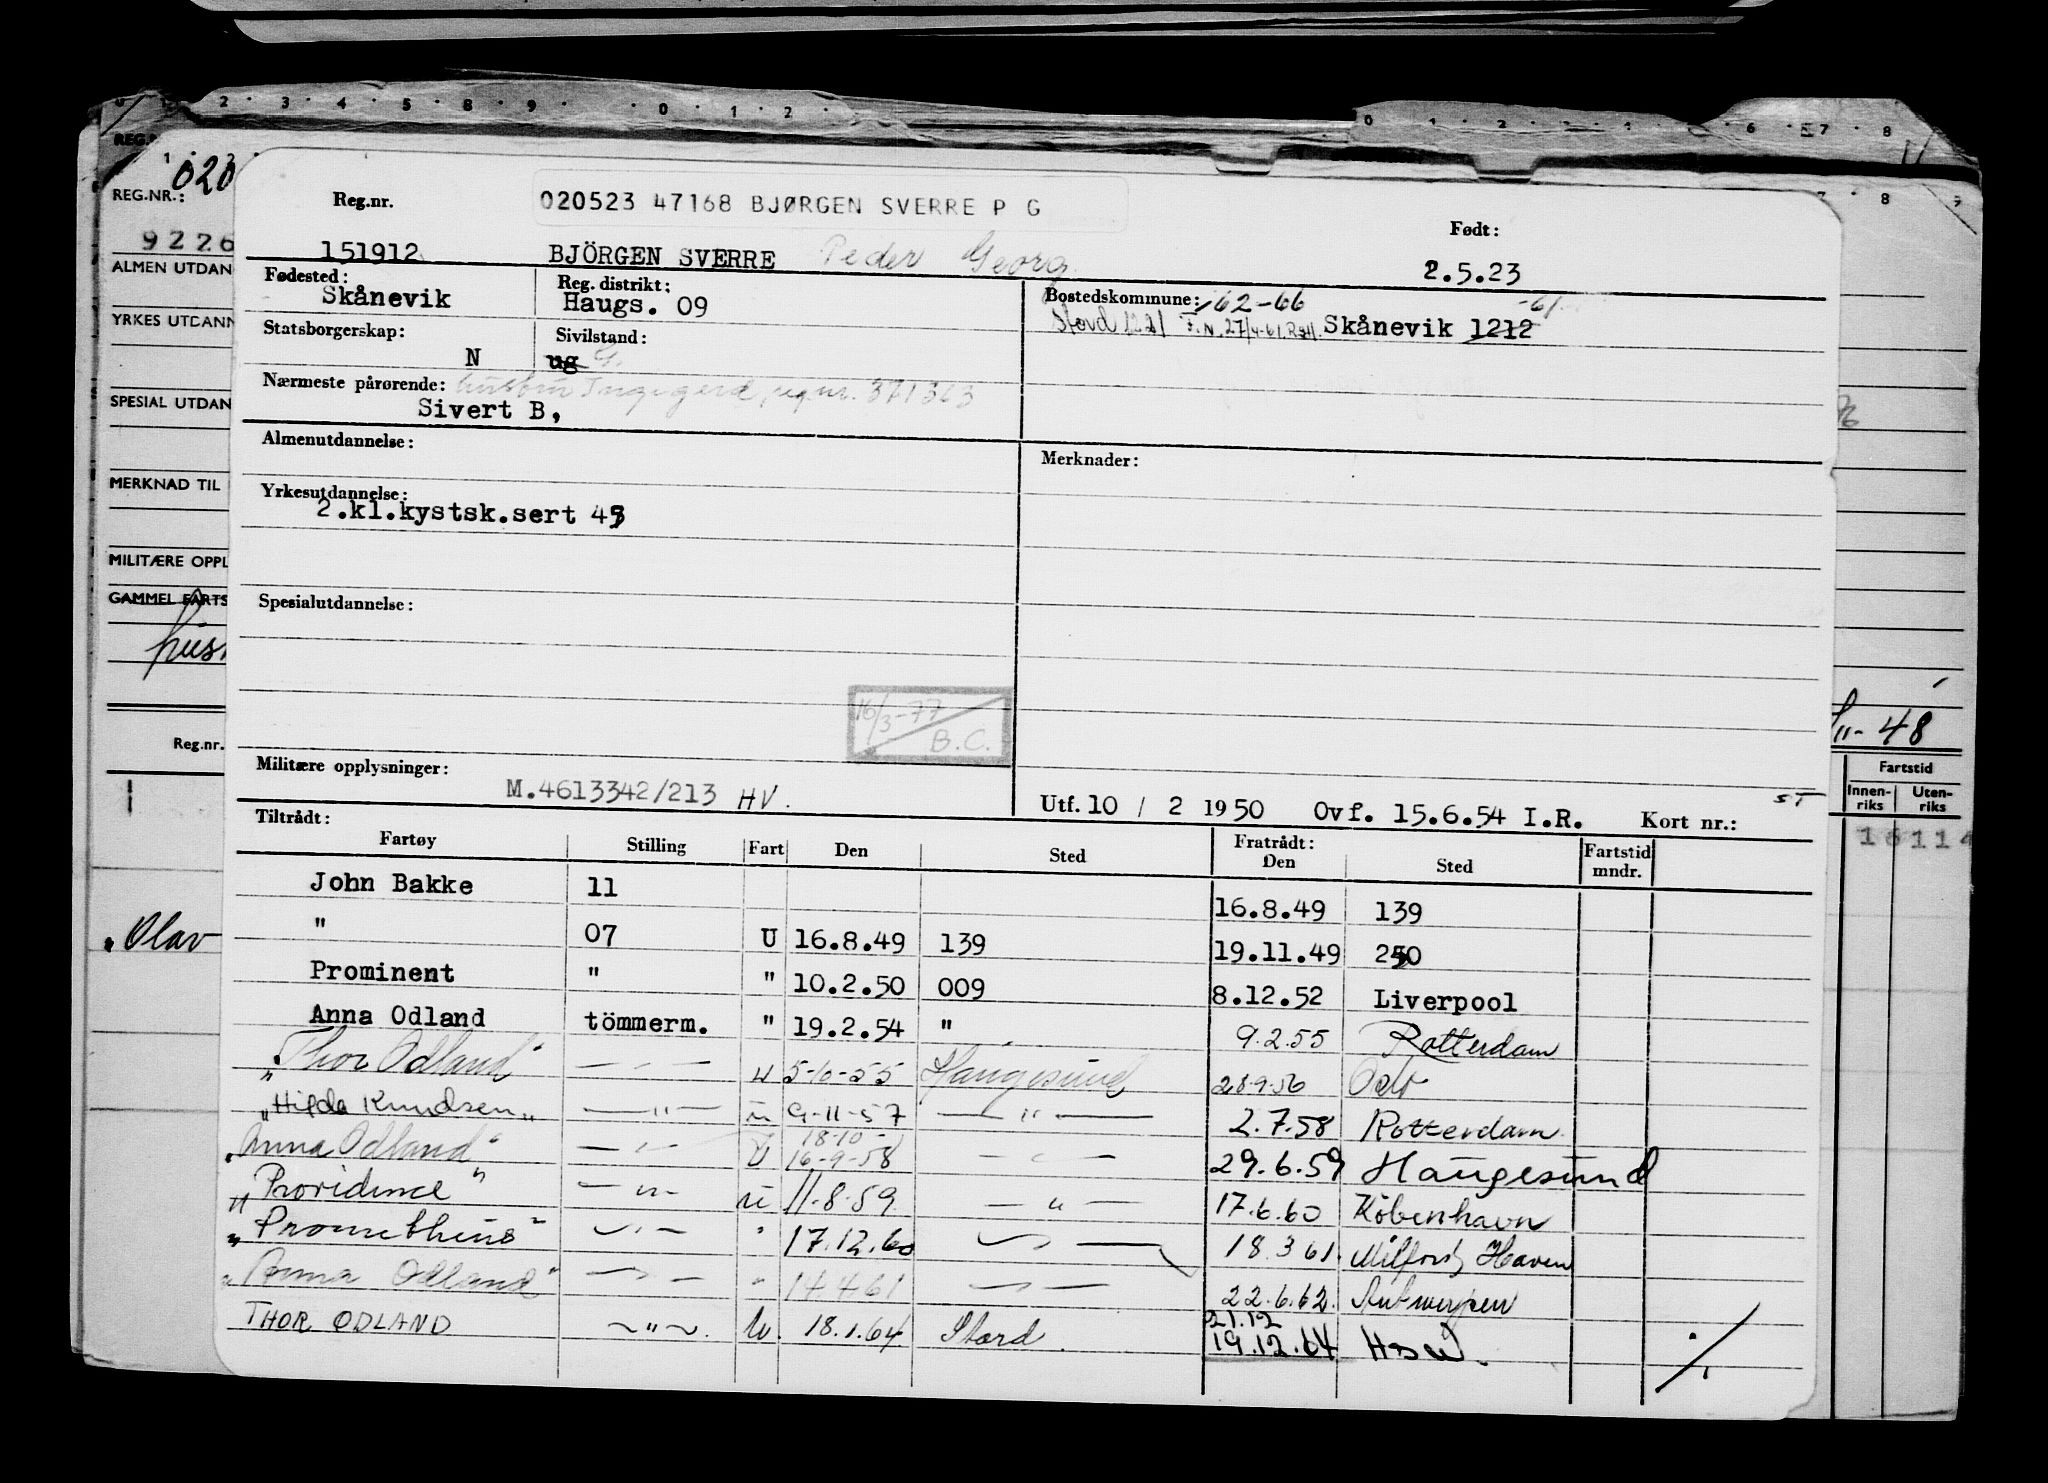 REG.NR.: 020
9226
ALMEN UTDAN
YRKES UTDANN
SPESIAL UTDAN
MERKNAD TIL
MILITÆRE OPPL
GAMMEL FARTS
Reg.nr.
Olav
Reg.nr. 020523 47168 BJØRGEN SVERRE P G Født:
151912 BJÖRGEN SVERRE Peder Georg 2.5.23
Fødested: Reg. distrikt: Bostedskommune: 62-66 -61
Skånevik Haugs. 09 Stord 1221 F.N. 27/4-61. Skånevik 1212
Statsborgerskap: Sivilstand:
N ug G.
Nærmeste pårørende: hustru Ingegerd, regnr. 371363
Sivert B,
Almenutdannelse: Merknader:
Yrkesutdannelse:
2.kl.kystsk.sert 43
Spesialutdannelse:
16/3-77
B.C.
Militære opplysninger:
M.4613342/213 HV. Utf. 10 / 2 1950 Ovf. 15.6.54 I.R. Kort nr.: ST
Tiltrådt: Fratrådt:
Fartøy Stilling Fart Den Sted Den Sted Fartstid mndr.
John Bakke 11 16.8.49 139
" 07 U 16.8.49 139 19.11.49 250
Prominent " " 10.2.50 009 8.12.52 Liverpool
Anna Odland tömmerm. " 19.2.54 " 9.2.55 Rotterdam
"Thor Odland" — " — u 5-10-55 Haugesund 28.9.56 Oslo
"Hilda Knudsen" — " — u 9-11-57 — " — 2.7.58 Rotterdam
18-10-
"Anna Odland" — " — U 16-9-58 — " — 29.6.59 Haugesund
"Providence" — " — u 11-8-59 — " — 17.6.60 København
"Prometheus" — " — " 17.12.60 — " — 18.3 61. Milford Haven
"Anna Odland" — " — " 14.4.61 — " — 22.6.62. Antwerpen
21.12
THOR ODLAND — " —. U. 18.1.64 Stord 19.12.64
./.
11-48
Fartstid
Innen-riks Uten-riks